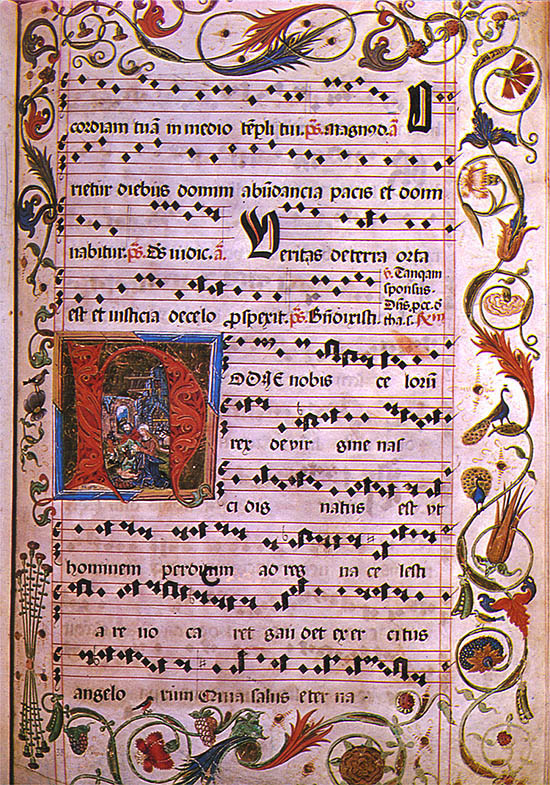 cordiam tuā in medio tēpli tui. ps. Magn9 d. a O
rietur diebus domini abūdancia pacis et domi
nabitur. ps. Ds iudic. a. Veritas de terra orta
v. Tanqam
sponsus.
est et iusticia de celo pspexit. ps. Bn̄dixisti.
HODIE nobis ce lorū
rex de vir gine nas
ci dig natus est vt
hominem perditum ad reg na ce lesti
a re uo ca ret gau det exer citus
angelo rum Quia salus eter na